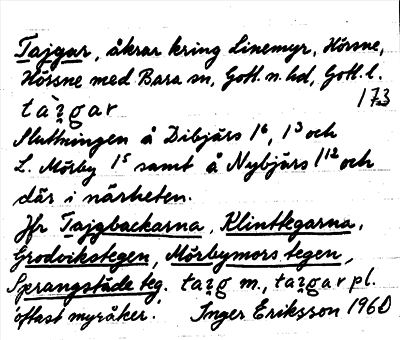 Tajgar, åkrar kring Linemyr, Hörsne,
Hörsne med Bara sn, Gotl. n. hd, Gotl. l.
173
ta`i̯gar
Sluttningen å Dibjärs 1⁶, 1³ och
L. Mörby 1⁵ samt å Nybjärs 1¹² och
där i närheten.
Jfr Tajgbackarna, Klinttegarna,
Grodvikstegen, Mörbymors tegen,
Sprangstäde teg. tai̯g m., tai̯gar pl.
'oftast myråker.' Inger Eriksson 1960